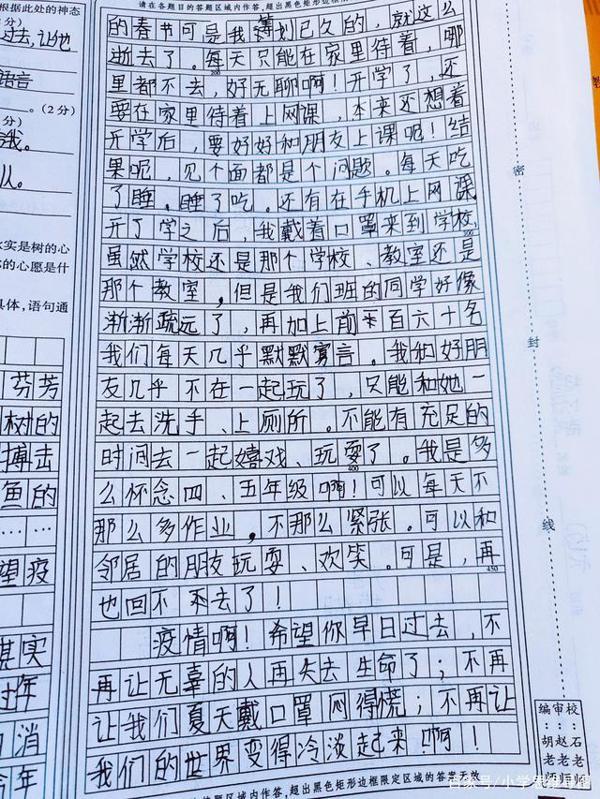 请在各题目的答题区域内作答，超出黑色矩形边框
根据此处的神态
2分）
过去,让他
语言
。（2分）
分）
我。
人。
实是树的心
的心愿是什
具体，语句通
芬芳
树的
搏击
鱼的
……
望疫
其实
过年
消
今年
的春节可是我筹划已久的，就这么
逝去了。每天只能在家里待着，哪
里都不去，好无聊啊！开学了，还
要在家里待着上网课，本来还想着
开学后，要好好和朋友上课呢！结
果呢，见个面都是个问题。每天吃
了睡。睡了吃。还有在手机上网课
开了学之后，我戴着口罩来到学校
虽然学校还是那个学校、教室还是
那个教室，但是我们班的同学好像
渐渐疏远了，再加上前一百六十名
我们每天几乎默默寡言。我和好朋
友几乎不在一起玩了，只能和她一
起去洗手、上厕所。不能有充足的
时间去一起嬉戏、玩耍了。我是多
么怀念四、五年级啊！可以每天不
那么多作业，不那么紧张。可以和
邻居的朋友玩耍、欢笑。可是，再
也回不来去了！
疫情啊！希望你早日过去，不
再让无辜的人再失去生命了；不再
让我们夏天戴口罩闷得慌；不再让
我们的世界变得冷淡起来啊！
200
400
450
各题目的答题区域内作答，超出黑色矩形边框限定区域的答案无效
密
封
线
编审校
：：：
胡赵石
老老老
师师师
百家号/小学